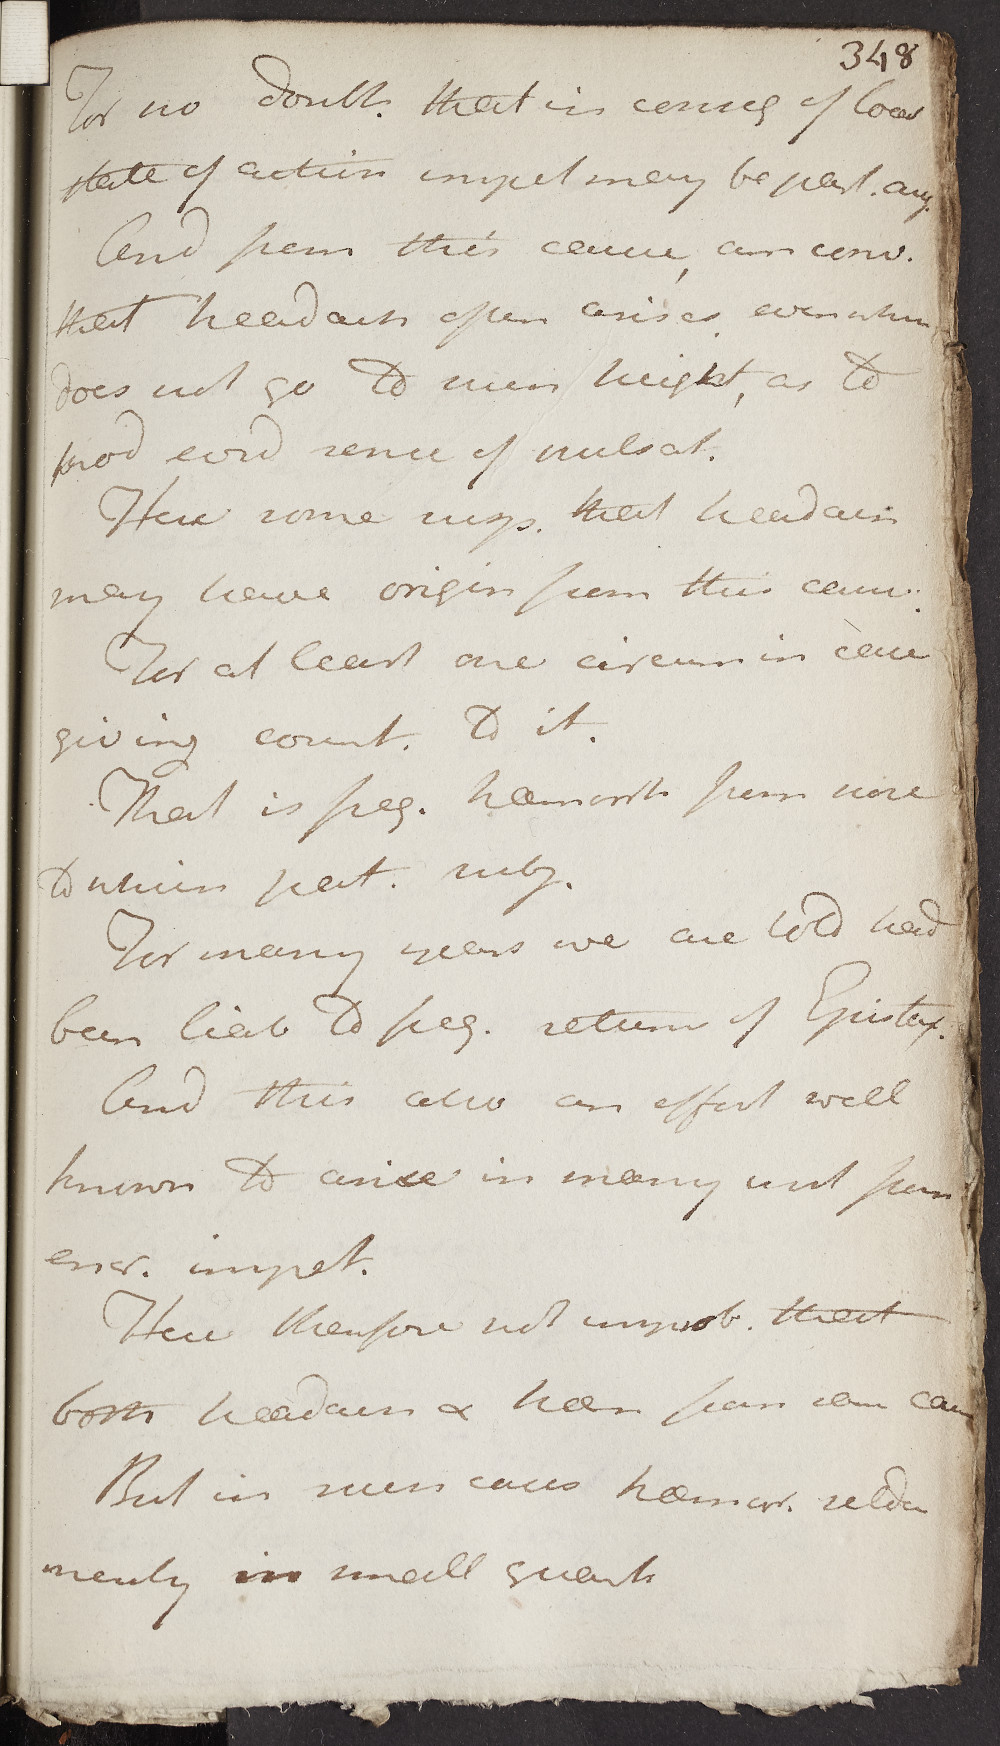 348
For no doubt. that in conseq of local
state of action impet may be part. aug.
And from this cause, am conv.
that headach often arises even when
does not go to such height, as to
prod evid sense of pulsat.
Here some susp. that headach
may have origin from this cause.
For at least one circum in case
giving count. to it.
That is freq. hæmorrh from nose
to which pat. subj.
For many years we are told had
been liab to freq. return of Epistax.
And this also an effect well
known to arise in many inst from
incr. impet.
Here therefore not improb. that
both headach & hæm from same cau
But in such cases hæmorr. seldm
merely in small quant